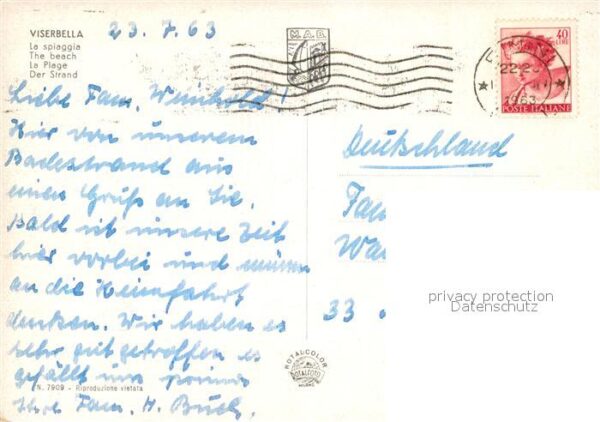 VISERBELLA
23.7.63
La spiaggia
The beach
La Plage
Der Strand
M.A.B.
40
LIRE
22-23
1963
POSTE ITALIANE
Liebe Fam. Weinhold!
Hier von unserem
Badestrand aus
einen Gruß an Sie.
Bald ist unsere Zeit
hier vorbei und müssen
an die Heimfahrt
denken. Wir haben es
sehr gut getroffen es
gefällt uns prima
Ihre Fam. H. Buch.
Deutschland
Fam
Wa
33
privacy protection
Datenschutz
ROTALCOLOR
ROTALFOTO
MILANO
N. 7909 - Riproduzione vietata